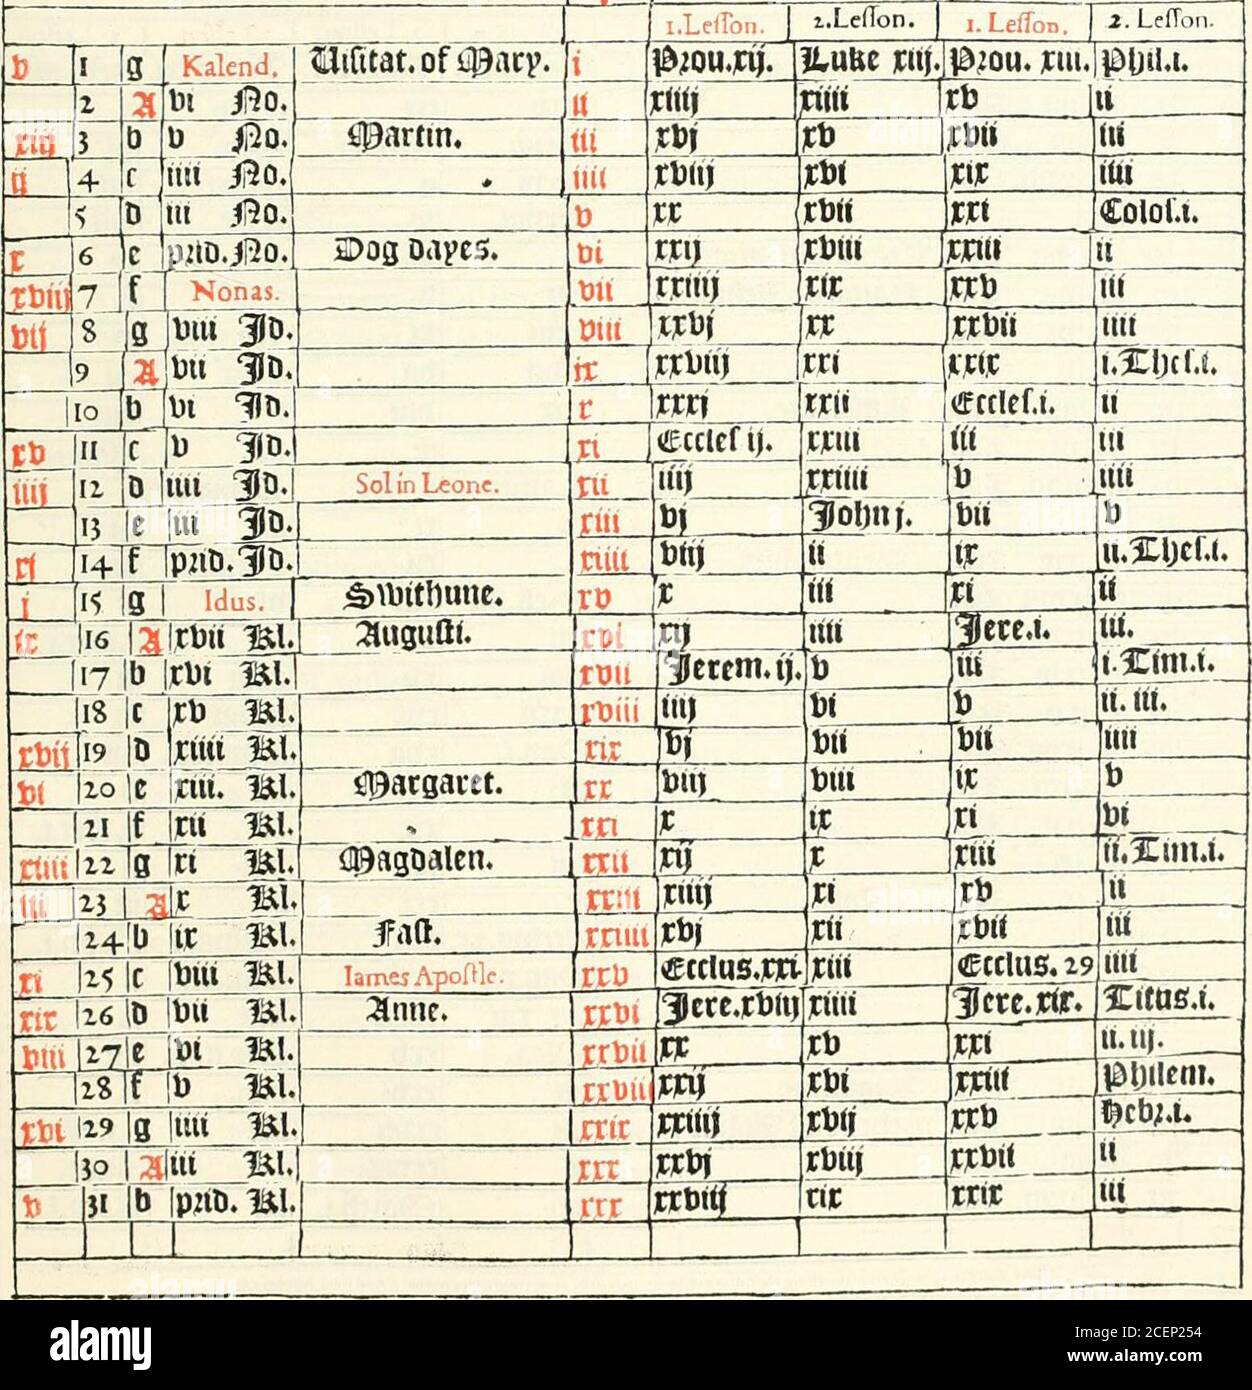 1.Leſſon. 2.Leſſon. 1. Leſſon. 2. Leſſon.
v 1 g Kalend. Uiſitat. of Mary. i Prou.xij. Luke xiij. Prou. xiii. Phil.i.
2 A vi No. ii xiiij xiiii xv ii
xiij 3 b v No. Martin. iii xvj xv xvii iii
ij 4 c iiii No. iiii xviij xvi xix iiii
5 d iii No. v xx xvii xxi Coloſ.i.
x 6 e prid. No. Dog dayes. vi xxij xviii xxiii ii
xviij 7 f Nonas. vii xxiiij xix xxv iii
vij 8 g viii Id. viii xxvj xx xxvii iiii
9 A vii Id. ix xxviij xxi xxix i.Theſ.i.
10 b vi Id. x xxxj xxii Eccleſ.i. ii
xv 11 c v Id. xi Eccleſ ij. xxiii iii iii
iiij 12 d iiii Id. Sol in Leone. xii iiij xxiiii v iiii
13 e iii Id. xiii vj John j. vii v
xj 14 f prid. Id. xiiii viij ii ix ii.Theſ.i.
j 15 g Idus. Swithune. xv x iii xi ii
ix 16 A xvii Kl. Auguſti. xvi xij iiii Jere.i. iii.
17 b xvi Kl. xvii Jerem. ij. v iii i.Tim.i.
18 c xv Kl. xviii iiij vi v ii. iii.
xvij 19 d xiiii Kl. xix vj vii vii iiii
vi 20 e xiii. Kl. Margaret. xx viij viii ix v
21 f xii Kl. xxi x ix xi vi
xiiii 22 g xi Kl. Magdalen. xxii xij x xiii ii.Tim.i.
iii 23 A x Kl. xxiii xiiij xi xv ii
24 b ix Kl. Faſt. xxiiii xvj xii xvii iii
xi 25 c viii Kl. Iames Apoſtle. xxv Ecclus.xxi xiii Ecclus. 29 iiii
xix 26 d vii Kl. Anne. xxvi Jere.xviij xiiii Jere. xix. Titus.i.
viii 27 e vi Kl. xxvii xx xv xxi ii. iij.
28 f v Kl. xxviii xxij xvi xxiii Philem.
xvi 29 g iiii Kl. xxix xxiiij xvij xxv Hebr.i.
30 A iii Kl. xxx xxvj xviij xxvii ii
v 31 b prid. Kl. xxx xxviij xix xxix iii
alamy
Image ID: 2CEP254
www.alamy.com